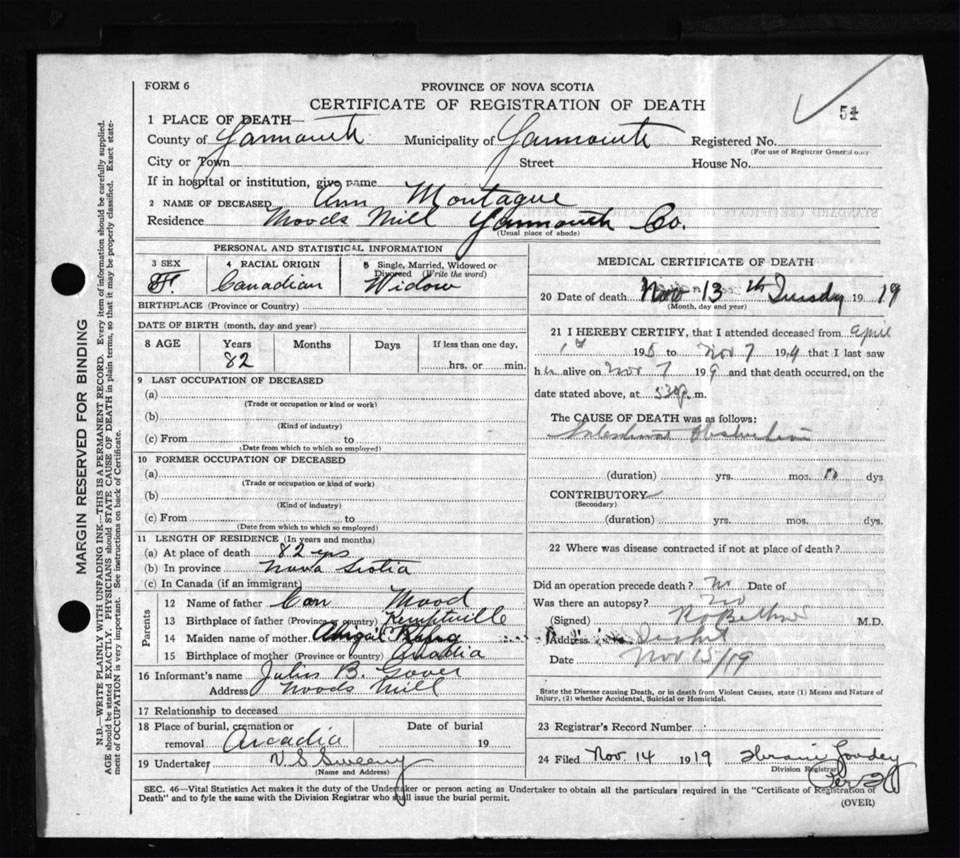 FORM 6
PROVINCE OF NOVA SCOTIA
CERTIFICATE OF REGISTRATION OF DEATH
51
1 PLACE OF DEATH—
County of Yarmouth Municipality of Yarmouth Registered No.
(For use of Registrar General only)
City or Town Street House No.
If in hospital or institution, give name
2 NAME OF DECEASED Ann Montague
Residence Moods Mill Yarmouth Co.
(Usual place of abode)
PERSONAL AND STATISTICAL INFORMATION
3 SEX 4 RACIAL ORIGIN 5 Single, Married, Widowed or Divorced (Write the word)
F. Canadian Widow
BIRTHPLACE (Province or Country)
DATE OF BIRTH (month, day and year)
8 AGE Years Months Days If less than one day,
82 hrs. or min.
9 LAST OCCUPATION OF DECEASED
(a)
(Trade or occupation or kind or work)
(b)
(Kind of industry)
(c) From to
(Date from which to which so employed)
10 FORMER OCCUPATION OF DECEASED
(a)
(Trade or occupation or kind of work)
(b)
(Kind of industry)
(c) From to
(Date from which to which so employed)
11 LENGTH OF RESIDENCE (In years and months)
(a) At place of death 82 yrs
(b) In province Nova Scotia
(c) In Canada (if an immigrant)
Parents
12 Name of father Mood
13 Birthplace of father (Province or country) Kemptville
14 Maiden name of mother Abigail
15 Birthplace of mother (Province or country) Arcadia
16 Informant's name B.
Address Moods Mill
17 Relationship to deceased
18 Place of burial, cremation or removal Arcadia Date of burial 19
19 Undertaker V S Sweeny
(Name and Address)
MEDICAL CERTIFICATE OF DEATH
20 Date of death Nov 13 th 19 19
(Month, day and year)
21 I HEREBY CERTIFY, that I attended deceased from April
1st 19 to Nov 7 1919 that I last saw
her alive on Nov 7 1919 and that death occurred, on the
date stated above, at 530 p. m.
The CAUSE OF DEATH was as follows:
Intestinal Obstruction
(duration) yrs. mos. 10 dys
CONTRIBUTORY
(Secondary)
(duration) yrs. mos. dys.
22 Where was disease contracted if not at place of death?
Did an operation precede death? No Date of
Was there an autopsy? No
(Signed) M.D.
Address
Date Nov 15/19
State the Disease causing Death, or in death from Violent Causes, state (1) Means and Nature of Injury, (2) whether Accidental, Suicidal or Homicidal.
23 Registrar's Record Number
24 Filed Nov. 14 1919
Division Registrar
SEC. 46—Vital Statistics Act makes it the duty of the Undertaker or person acting as Undertaker to obtain all the particulars required in the "Certificate of Registration of
Death" and to fyle the same with the Division Registrar who shall issue the burial permit. (OVER)
MARGIN RESERVED FOR BINDING
N.B.—WRITE PLAINLY WITH UNFADING INK—THIS IS A PERMANENT RECORD. Every item of information should be carefully supplied.
AGE should be stated EXACTLY. PHYSICIANS should STATE CAUSE OF DEATH in plain terms, so that it may be properly classified. Exact statement of OCCUPATION is very important. See instructions on back of Certificate.